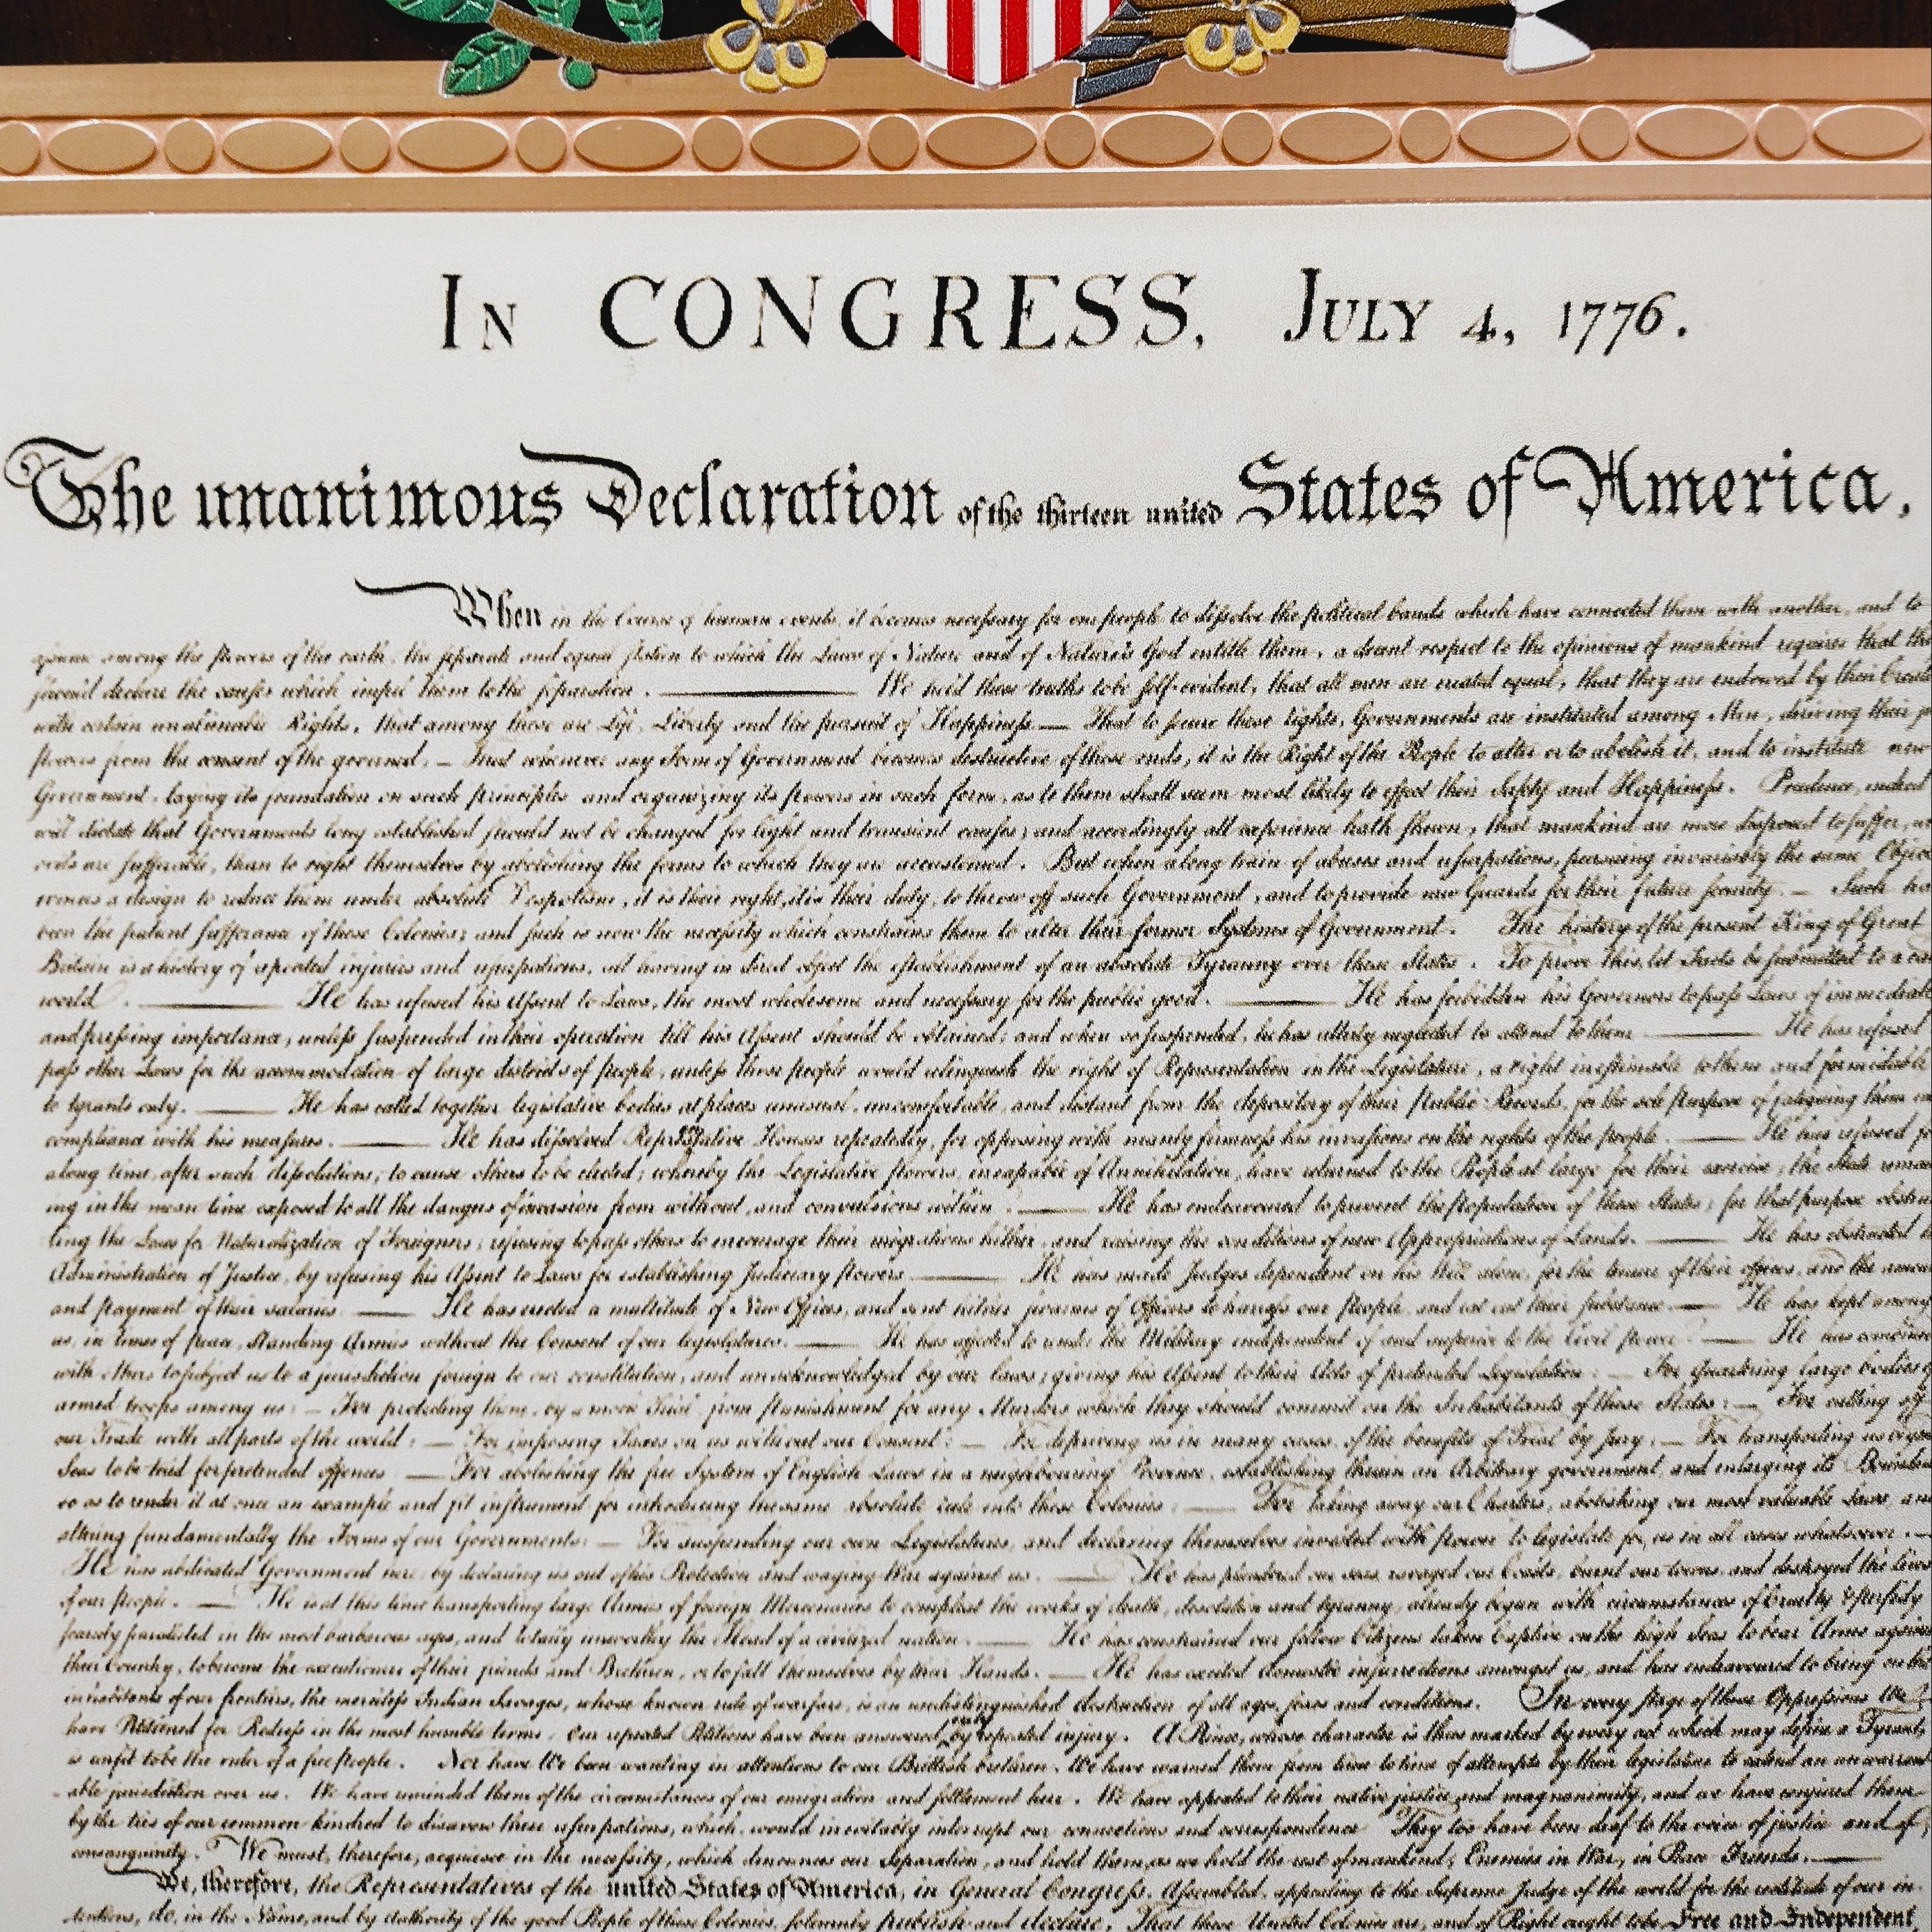 IN CONGRESS, JULY 4, 1776.
The unanimous Declaration of the thirteen united States of America,
When in the Course of human events, it becomes necessary for one people to dissolve the political bands which have connected them with another, and to
assume among the powers of the earth, the separate and equal station to which the Laws of Nature and of Nature's God entitle them, a decent respect to the opinions of mankind requires that the
should declare the causes which impel them to the separation. — We hold these truths to be self-evident, that all men are created equal, that they are endowed by their Creato
with certain unalienable Rights, that among these are Life, Liberty and the pursuit of Happiness — That to secure these rights, Governments are instituted among Men, deriving their
powers from the consent of the governed, — That whenever any Form of Government becomes destructive of these ends, it is the Right of the People to alter or to abolish it, and to institute new
Government, laying its foundation on such principles and organizing its powers in such form, as to them shall seem most likely to effect their Safety and Happiness. Prudence, indeed
will dictate that Governments long established should not be changed for light and transient causes; and accordingly all experience hath shewn, that mankind are more disposed to suffer,
evils are sufferable, than to right themselves by abolishing the forms to which they are accustomed. But when a long train of abuses and usurpations, pursuing invariably the same Objec
evinces a design to reduce them under absolute Despotism, it is their right, it is their duty, to throw off such Government, and to provide new Guards for their future security. — Such ha
been the patient sufferance of these Colonies; and such is now the necessity which constrains them to alter their former Systems of Government. The history of the present King of Great
Britain is a history of repeated injuries and usurpations, all having in direct object the establishment of an absolute Tyranny over these States. To prove this, let Facts be submitted to a can
world. — He has refused his Assent to Laws, the most wholesome and necessary for the public good. — He has forbidden his Governors to pass Laws of immediate
and pressing importance, unless suspended in their operation till his Assent should be obtained; and when so suspended, he has utterly neglected to attend to them. — He has refused
pass other Laws for the accommodation of large districts of people, unless those people would relinquish the right of Representation in the Legislature, a right inestimable to them and formidable
to tyrants only. — He has called together legislative bodies at places unusual, uncomfortable, and distant from the depository of their Public Records, for the sole purpose of fatiguing them in
compliance with his measures. — He has dissolved Representative Houses repeatedly, for opposing with manly firmness his invasions on the rights of the people. — He has refused fo
a long time, after such dissolutions, to cause others to be elected; whereby the Legislative powers, incapable of Annihilation, have returned to the People at large for their exercise; the State remai
ing in the mean time exposed to all the dangers of invasion from without, and convulsions within. — He has endeavoured to prevent the population of these States; for that purpose obstru
ting the Laws for Naturalization of Foreigners; refusing to pass others to encourage their migrations hither, and raising the conditions of new Appropriations of Lands. — He has obstructed
Administration of Justice, by refusing his Assent to Laws for establishing Judiciary powers. — He has made Judges dependent on his Will alone, for the tenure of their offices, and the amoun
and payment of their salaries. — He has erected a multitude of New Offices, and sent hither swarms of Officers to harrass our people, and eat out their substance. — He has kept among
us, in times of peace, Standing Armies without the Consent of our legislatures. — He has affected to render the Military independent of and superior to the Civil power. — He has combined
with others to subject us to a jurisdiction foreign to our constitution, and unacknowledged by our laws; giving his Assent to their Acts of pretended Legislation: — For Quartering large bodies
armed troops among us: — For protecting them, by a mock Trial, from punishment for any Murders which they should commit on the Inhabitants of these States: — For cutting off
our Trade with all parts of the world: — For imposing Taxes on us without our Consent: — For depriving us in many cases, of the benefits of Trial by Jury: — For transporting us beyon
Seas to be tried for pretended offences — For abolishing the free System of English Laws in a neighbouring Province, establishing therein an Arbitrary government, and enlarging its Boundar
so as to render it at once an example and fit instrument for introducing the same absolute rule into these Colonies: — For taking away our Charters, abolishing our most valuable Laws, and
altering fundamentally the Forms of our Governments: — For suspending our own Legislatures, and declaring themselves invested with power to legislate for us in all cases whatsoever. —
He has abdicated Government here, by declaring us out of his Protection and waging War against us. — He has plundered our seas, ravaged our Coasts, burnt our towns, and destroyed the lives
of our people. — He is at this time transporting large Armies of foreign Mercenaries to compleat the works of death, desolation and tyranny, already begun with circumstances of Cruelty & perfidy
scarcely paralleled in the most barbarous ages, and totally unworthy the Head of a civilized nation. — He has constrained our fellow Citizens taken Captive on the high Seas to bear Arms again
their Country, to become the executioners of their friends and Brethren, or to fall themselves by their Hands. — He has excited domestic insurrections amongst us, and has endeavoured to bring on the
inhabitants of our frontiers, the merciless Indian Savages, whose known rule of warfare, is an undistinguished destruction of all ages, sexes and conditions. In every stage of these Oppressions We
have Petitioned for Redress in the most humble terms: Our repeated Petitions have been answered only by repeated injury. A Prince, whose character is thus marked by every act which may define a Tyrant,
is unfit to be the ruler of a free people. Nor have We been wanting in attentions to our Brittish brethren. We have warned them from time to time of attempts by their legislature to extend an unwarrant
able jurisdiction over us. We have reminded them of the circumstances of our emigration and settlement here. We have appealed to their native justice and magnanimity, and we have conjured them
by the ties of our common kindred to disavow these usurpations, which, would inevitably interrupt our connections and correspondence. They too have been deaf to the voice of justice and of
consanguinity. We must, therefore, acquiesce in the necessity, which denounces our Separation, and hold them, as we hold the rest of mankind, Enemies in War, in Peace Friends. —
We, therefore, the Representatives of the united States of America, in General Congress, Assembled, appealing to the Supreme Judge of the world for the rectitude of our in-
tentions, do, in the Name, and by Authority of the good People of these Colonies, solemnly publish and declare, That these United Colonies are, and of Right ought to be Free and Independent